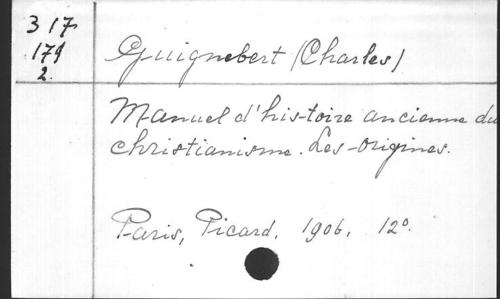 317
179
2.
Guignebert (Charles)
Manuel d'histoire ancienne du
christianisme. Les origines.
Paris, Picard, 1906, 12°.